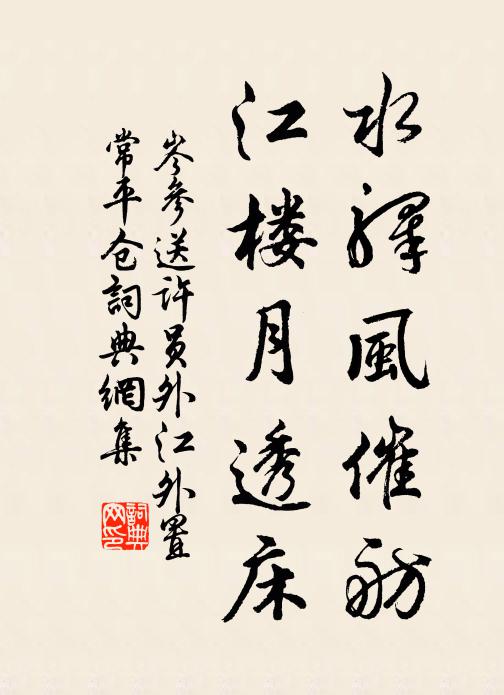 水驛風催舫
江楼月透床
岑參送許员外江外置
常平仓詞典網集
詞典网印